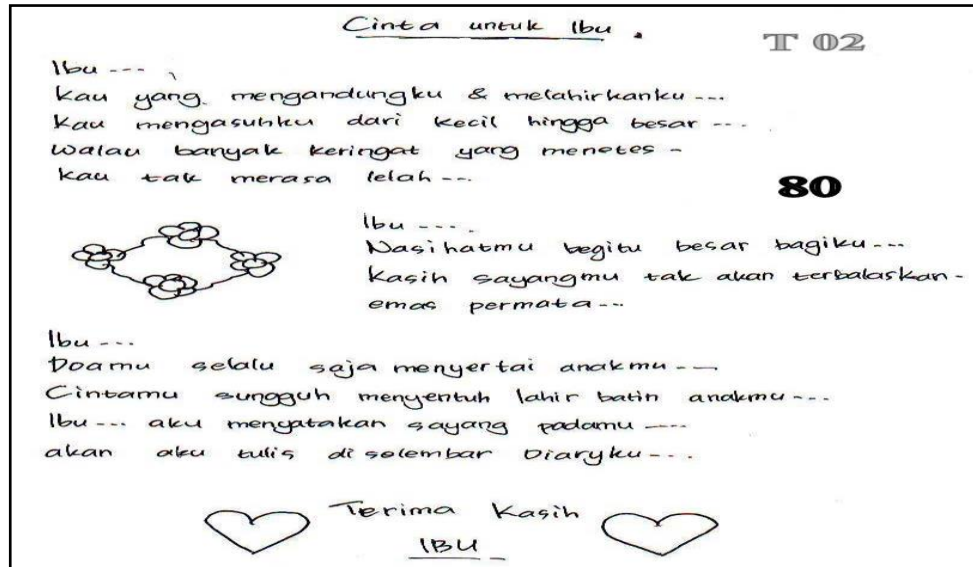 Cinta untuk Ibu.
T 02
Ibu --- ,
Kau yang mengandungku & melahirkanku ---
Kau mengasuhku dari kecil hingga besar ---
Walau banyak keringat yang menetes -
Kau tak merasa lelah ---
80
Ibu ----
Nasihatmu begitu besar bagiku ---
Kasih sayangmu tak akan terbalaskan -
emas permata ---
Ibu ---
Doamu selalu saja menyertai anakmu ---
Cintamu sungguh menyentuh lahir batin anakmu ---
Ibu --- aku menyatakan sayang padamu ----
akan aku tulis di selembar Diaryku ---
Terima Kasih
IBU